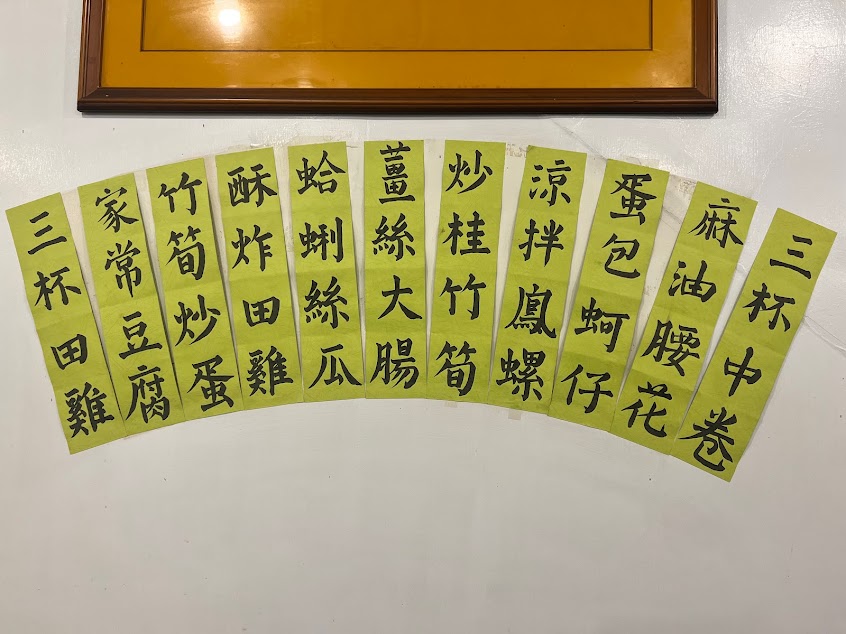 三杯中卷
麻油腰花
蛋包蚵仔
涼拌鳳螺
炒桂竹筍
薑絲大腸
蛤蜊絲瓜
酥炸田雞
竹筍炒蛋
家常豆腐
三杯田雞